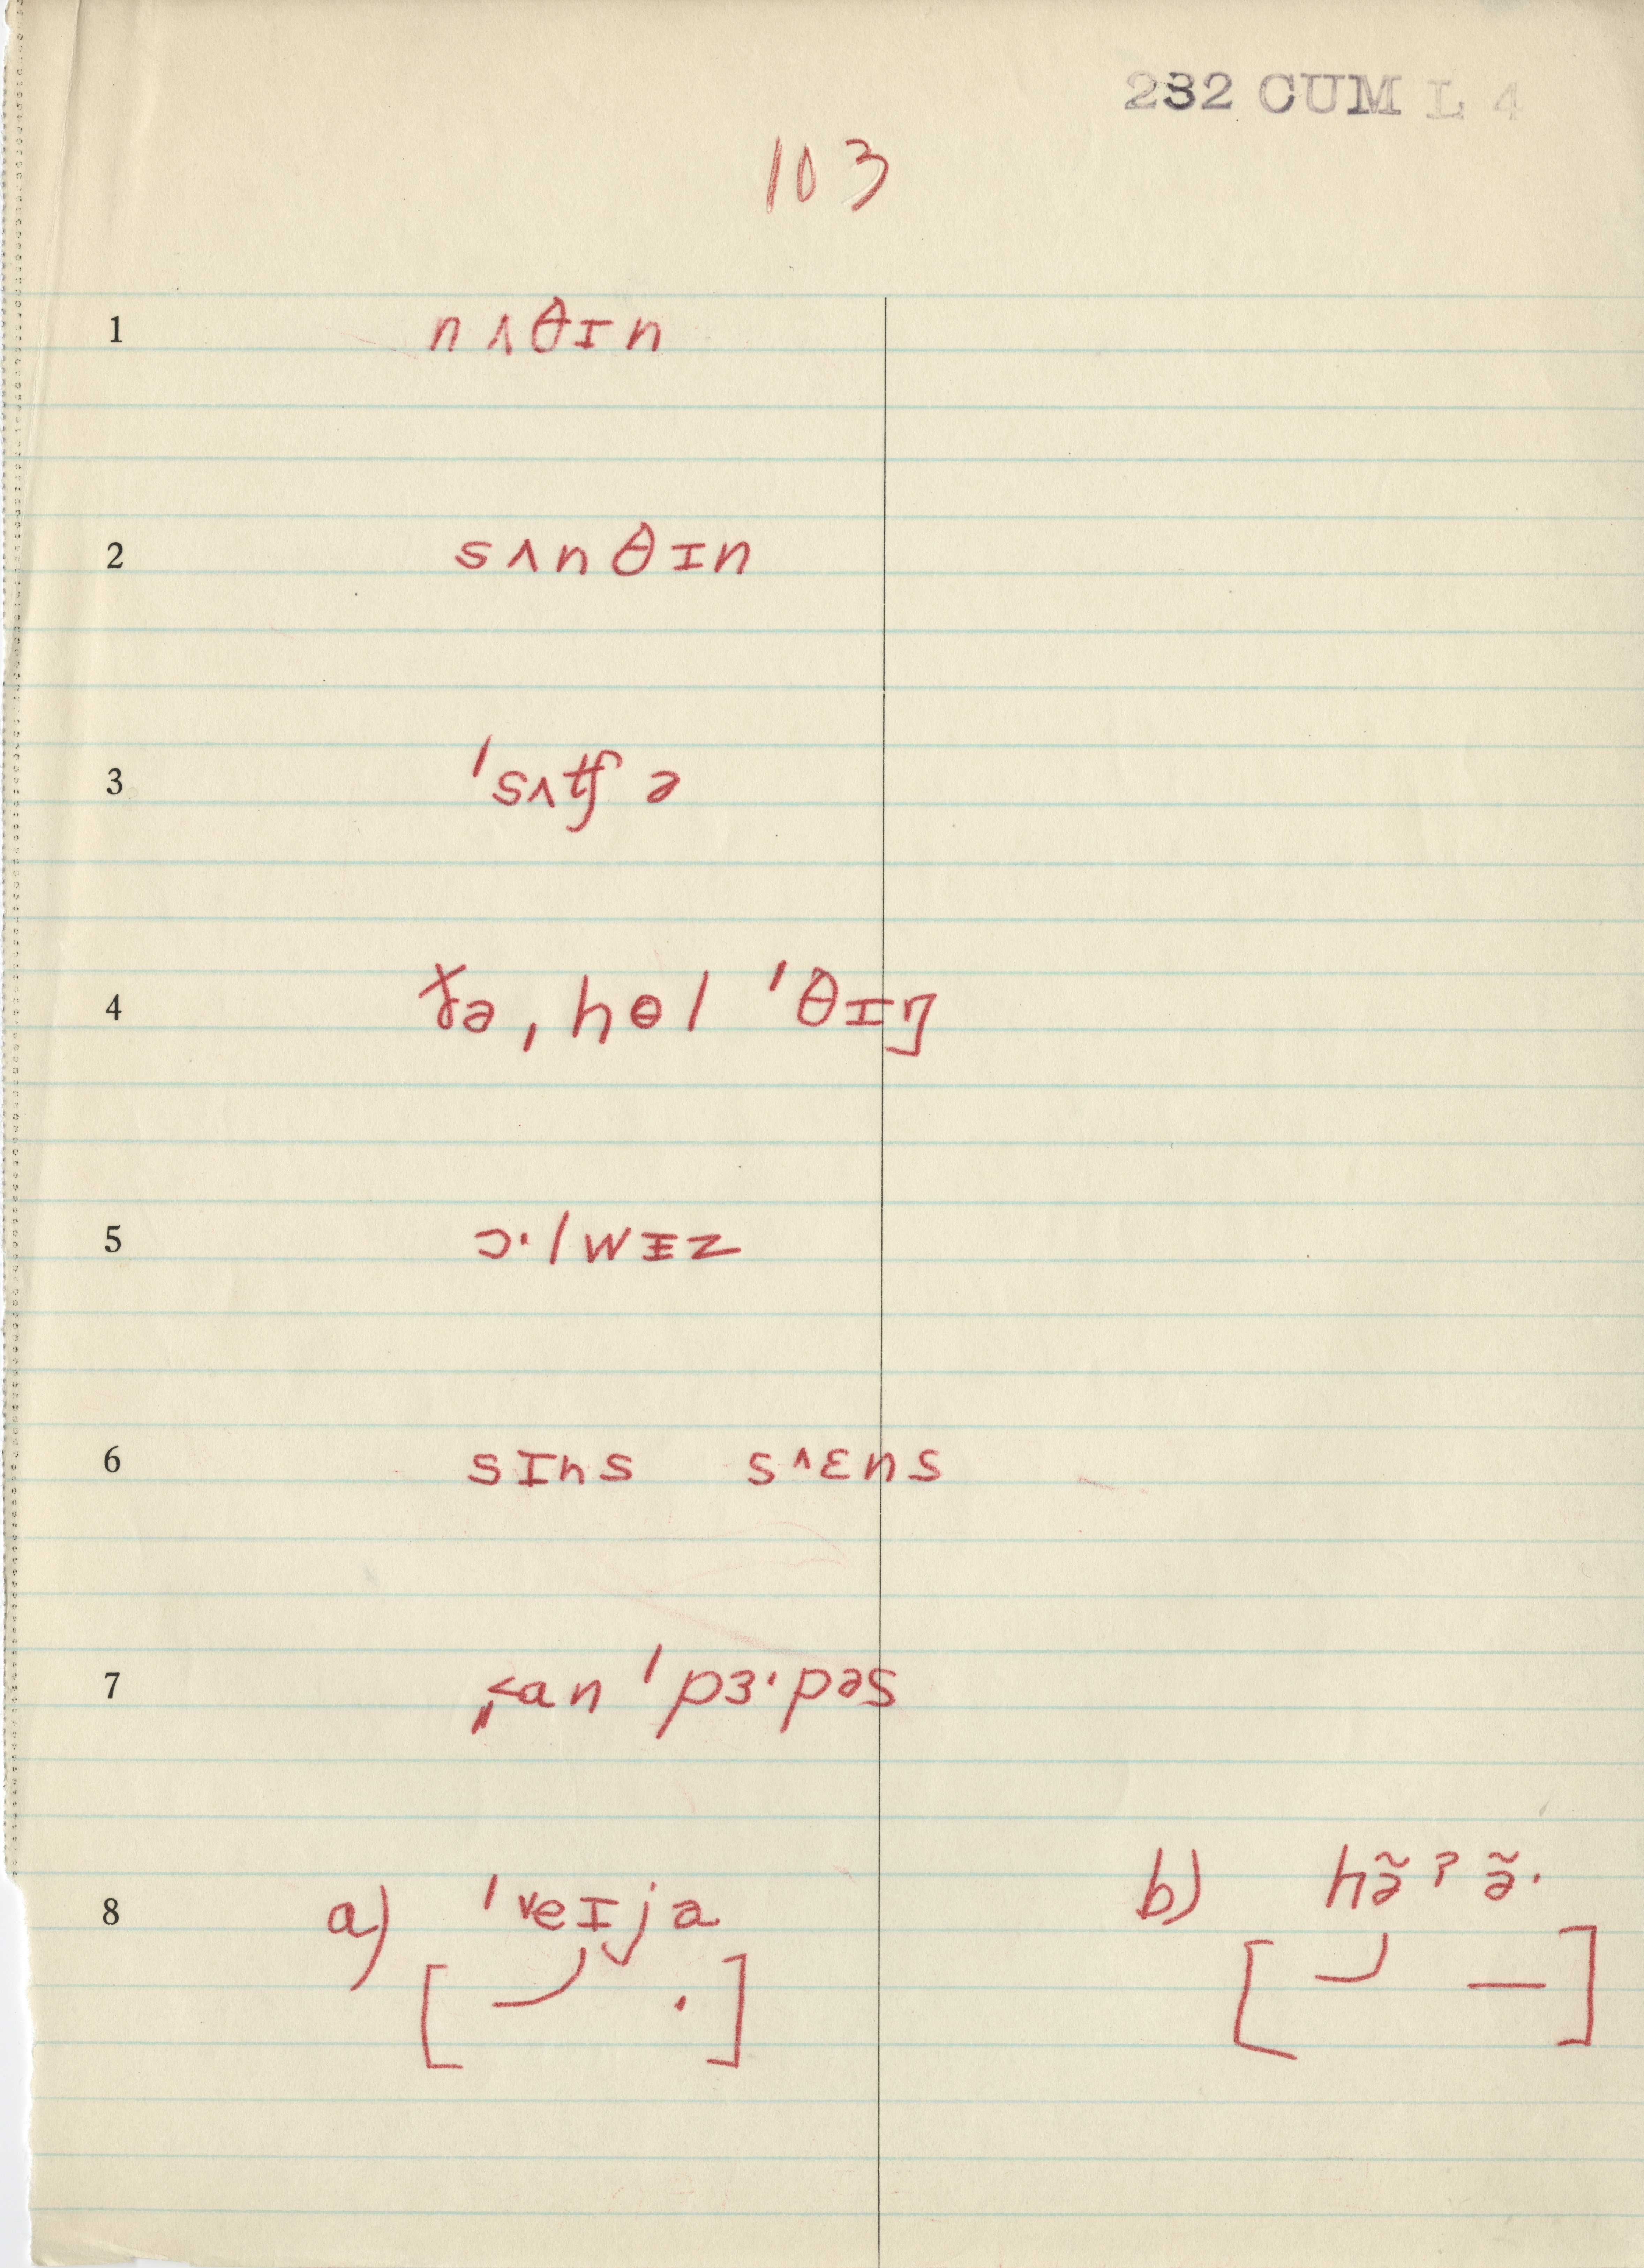 232 CUM L 4
103
1 nʌθɪn
2 sʌnθɪn
3 ˈsʌtʃ ə
4 ðə ˌhɵl ˈθɪŋ
5 ɔ·lwɪz
6 sɪns sʌɛns
7 an ˈpɜ·pəs
8 a) ˈveɪjə b) hə̃ʔə̃·
[ . ] [ — ]